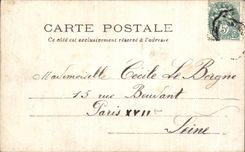 CARTE POSTALE
Ce côté est exclusivement réservé à l'adresse
Mademoiselle Cécile Le Borgne
13 rue Boudant
Paris XVII
Seine